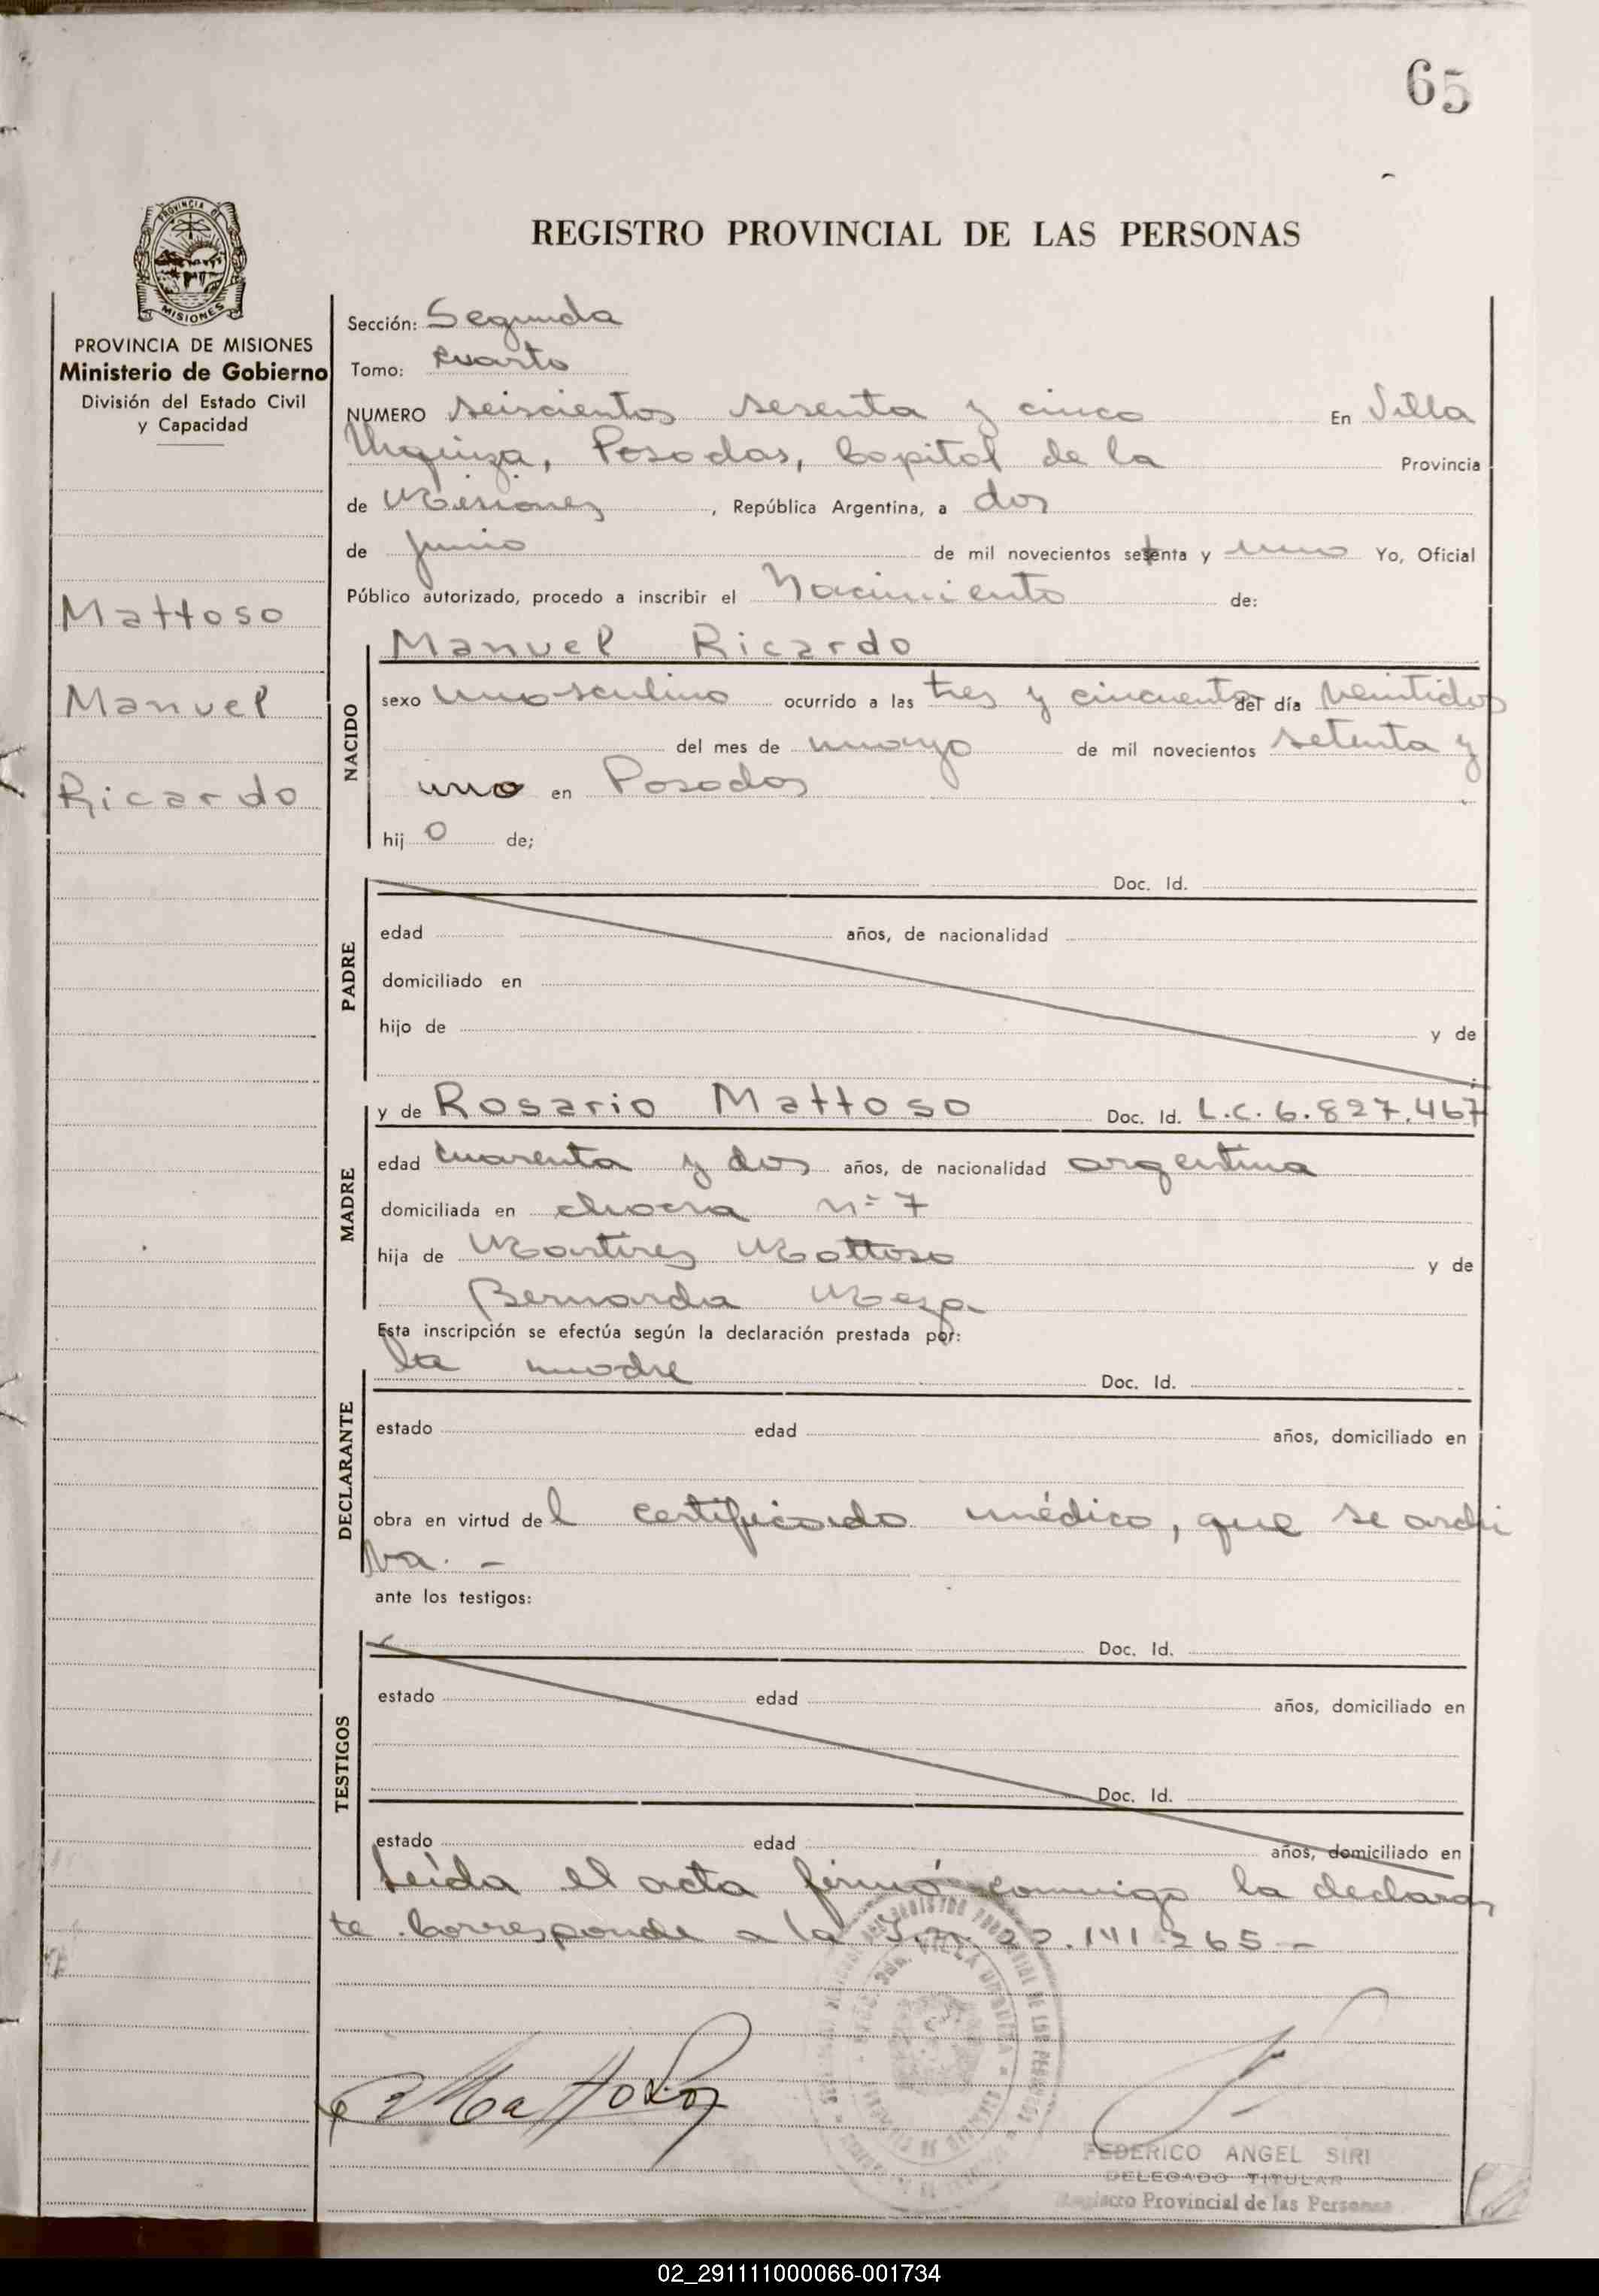 65
PROVINCIA DE
MISIONES
REGISTRO PROVINCIAL DE LAS PERSONAS
PROVINCIA DE MISIONES
Ministerio de Gobierno
División del Estado Civil
y Capacidad
Mattoso
Manuel
Ricardo
Sección: Segunda
Tomo: Cuarto
NUMERO seiscientos sesenta y cinco En Villa
Urquiza, Posadas, Capital de la Provincia
de Misiones, República Argentina, a dos
de junio de mil novecientos setenta y uno Yo, Oficial
Público autorizado, procedo a inscribir el Nacimiento de:
NACIDO
Manuel Ricardo
sexo masculino ocurrido a las tres y cincuenta del día veintidos
del mes de mayo de mil novecientos setenta y
uno en Posadas
hijo de;
PADRE
Doc. Id.
edad años, de nacionalidad
domiciliado en
hijo de y de
MADRE
y de Rosario Mattoso Doc. Id. L.C. 6.827.467
edad cuarenta y dos años, de nacionalidad argentina
domiciliada en chacra nº 7
hija de Martires Mattoso y de
Bernarda Meza
Esta inscripción se efectúa según la declaración prestada por:
DECLARANTE
la madre Doc. Id.
estado edad años, domiciliado en
obra en virtud del certificado médico, que se archi
va. -
ante los testigos:
TESTIGOS
Doc. Id.
estado edad años, domiciliado en
Doc. Id.
estado edad años, domiciliado en
Leída el acta firmó conmigo la declaran
te. Corresponde a la 141.265 -
Mattoso
FEDERICO ANGEL SIRI
DELEGADO TITULAR
Registro Provincial de las Personas
02_291111000066-001734